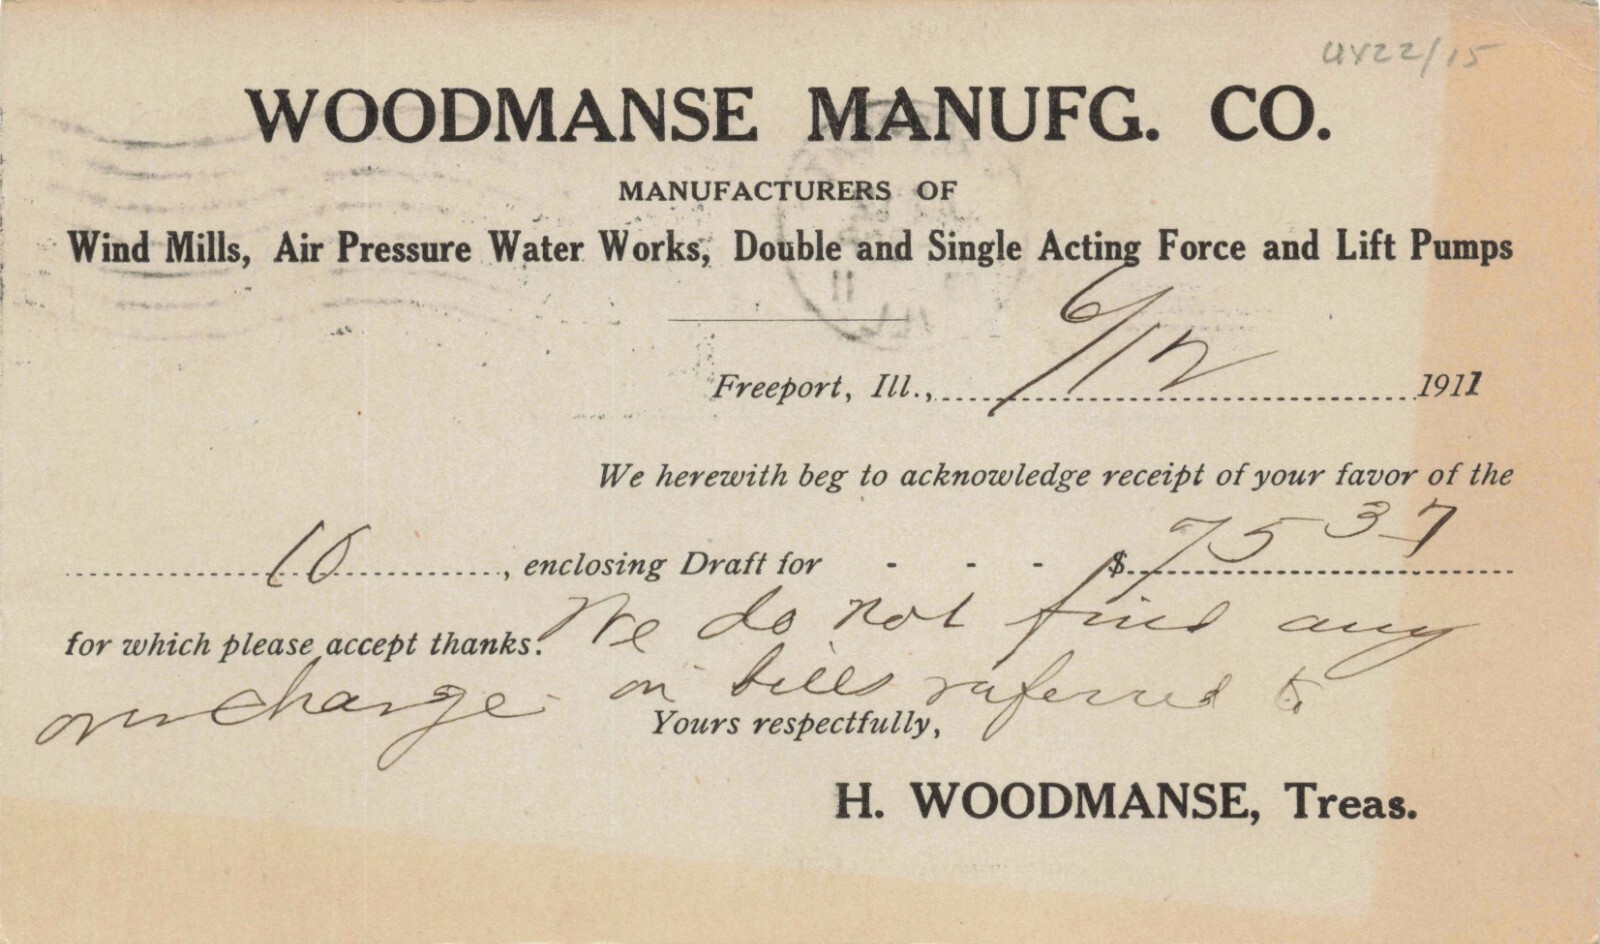 UX22/15
WOODMANSE MANUFG. CO.
MANUFACTURERS OF
Wind Mills, Air Pressure Water Works, Double and Single Acting Force and Lift Pumps
Freeport, Ill., 6/12 1911
We herewith beg to acknowledge receipt of your favor of the
10, enclosing Draft for - - - $7537
for which please accept thanks. We do not find any
overcharge on bills referred to
Yours respectfully,
H. WOODMANSE, Treas.